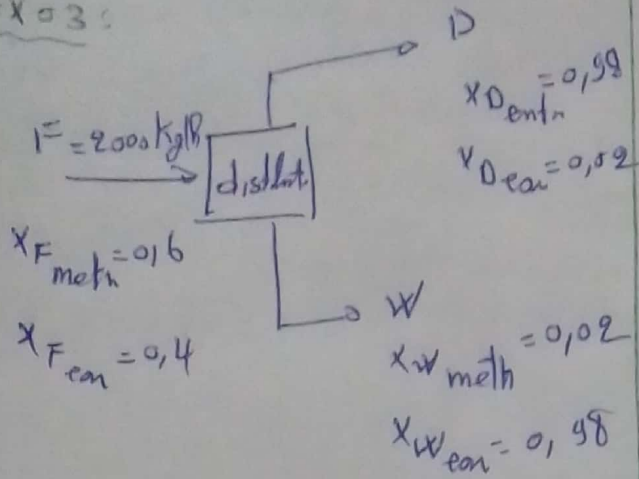 x o 3 :
D
x D meth = 0,98
x D eau = 0,02
F = 2000 Kg/h
distilat.
x F meth = 0,6
x F eau = 0,4
W
x W meth = 0,02
x W eau = 0,98